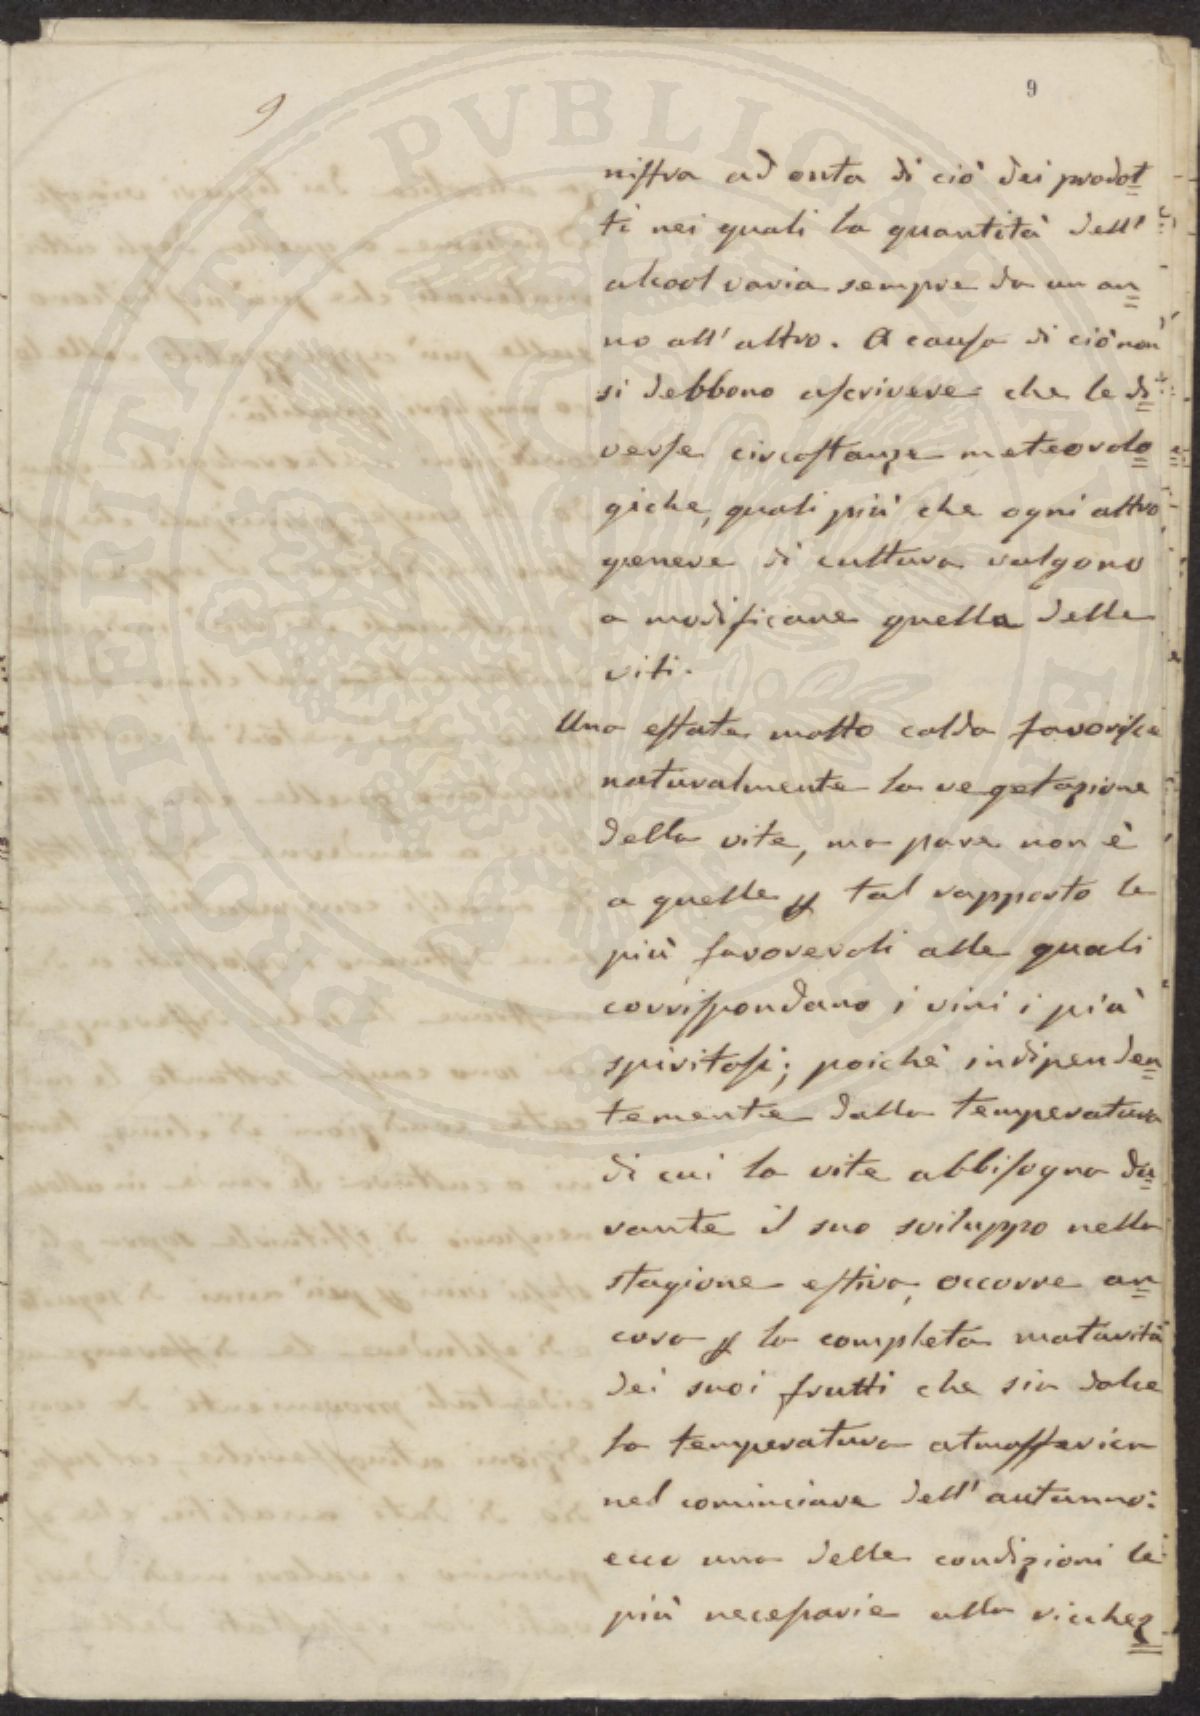 9
9
nistra ad onta di ciò dei prodot=
ti nei quali la quantità dell'
alcool varia sempre da un an=
no all'altro. A causa di ciò non
si debbono ascrivere che le di=
verse circostanze meteorolo=
giche, quali più che ogni altro
genere di cultura valgono
a modificare quella delle
viti.
Una estate molto calda favorisce
naturalmente la vegetazione
della vite, ma pare non è
a quelle p tal rapporto le
più favorevoli alle quali
corrispondano i vini i più
spiritosi; poichè indipenden=
temente dalla temperatura
di cui la vite abbisogna du=
rante il suo sviluppo nella
stagione estiva, occorre an=
cora p la completa maturità
dei suoi frutti che sia dolce
la temperatura atmosferica
nel cominciare dell'autunno:
ecco una delle condizioni le
più necessarie alla ricchez=
PROSPERITATI PVBLICAE AVGENDAE